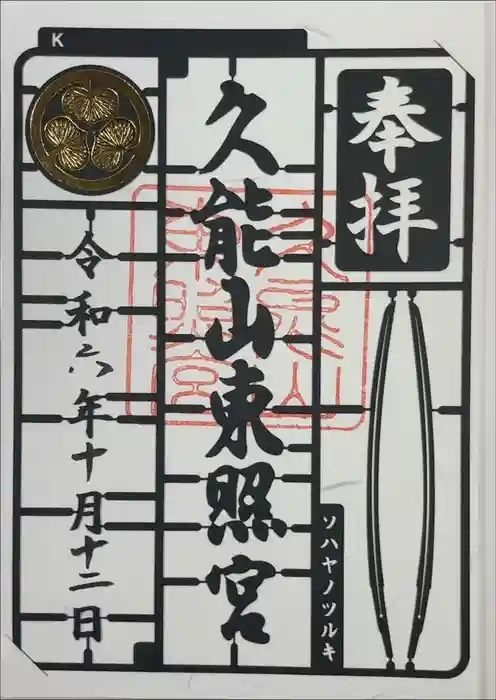 K
奉拝
久能山東照宮
ソハヤノツルキ
令和六年十月十二日
久能山
東照宮